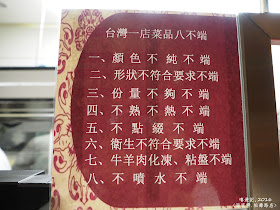 台灣一店菜品八不端
一、顏色不純不端
二、形狀不符合要求不端
三、份量不夠不端
四、不熟不熱不端
五、不點綴不端
六、衛生不符合要求不端
七、牛羊肉化凍、粘盤不端
八、不噴水不端